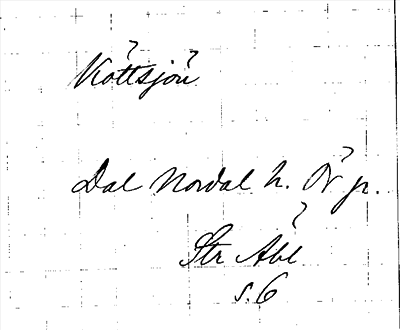 Köttsjön
Dal Nordal h. Ör jr.
Str Åbl
s. 6